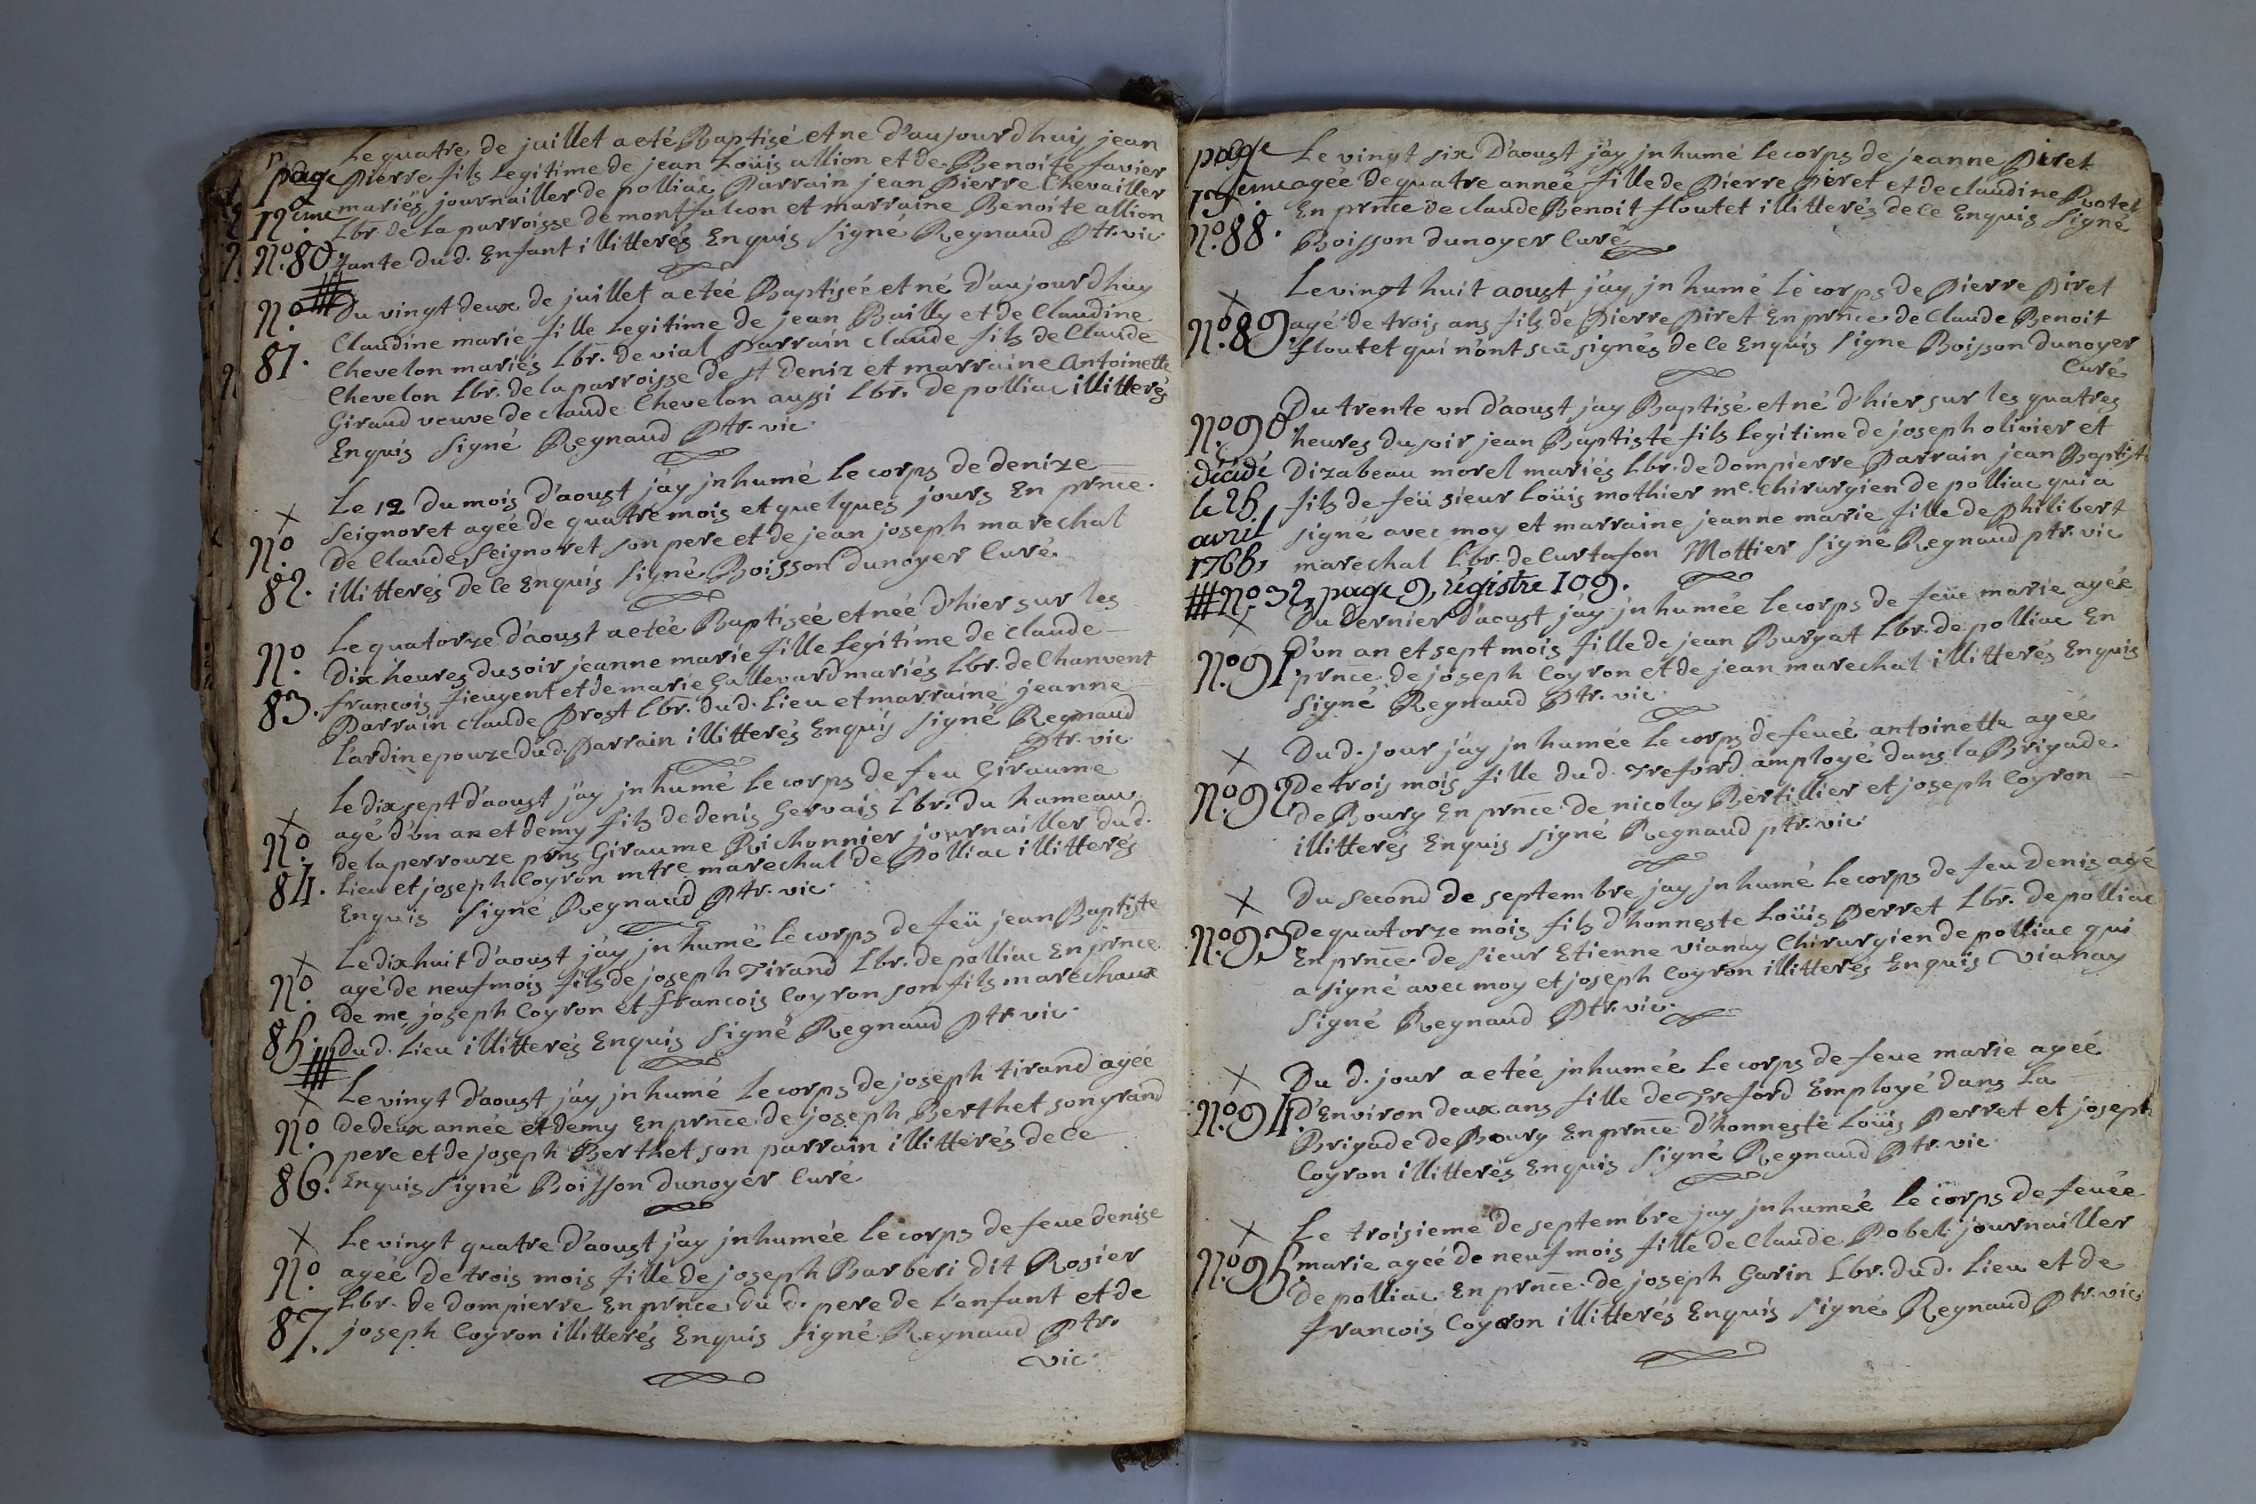 page
12eme
No. 80.
Le quatre de juillet a eté Baptisé et ne d'aujourdhuy jean
pierre fils legitime de jean Loüis allion et de Benoite favier
mariés journaillier de polliac Parrain jean pierre Chevailler
Lbr. de La parroisse de montfalcon et marraine Benoite allion
tante dud. Enfant illitterés Enquis signé Regnaud Ptr. vic.
No. 81.
Du vingt deux de juillet a eteé Baptiseé et né d'aujourdhuy
Claudine marie fille Legitime de jean Bailly et de Claudine
Chevelon mariés Lbr. de vial Parrain claude fils de Claude
Chevelon Lbr. de la parroisse de st deniz et marraine Antoinette
Giraud veuve de claude Chevelon aussi Lbr. de polliac illitterés
Enquis signé Regnaud Ptr. vic.
x
No. 82.
Le 12 du mois d'aoust j'ay jnhumé le corps de denize
Seignoret ageé de quatre mois et quelques jours En prnce.
de Claude Seignoret son pere et de jean joseph marechal
illitterés de ce Enquis signé Boisson dunoyer Curé
No. 83.
Le quatorze d'aoust a eteé Baptiseé et neé d'hier sur les
dix heures du soir jeanne marie fille Legitime de Claude
francois fieugent et de marie Gallevard mariés Lbr. de Chanvent
Parrain claude Prost Lbr. dud. Lieu et marraine jeanne
Cardin epouze dud. Parrain illitterés Enquis signé Regnaud
Ptr. vic.
x
No. 84.
Le dix sept d'aoust j'ay jnhumé Le corps de feu Giraume
agé d'un an et demy fils de denis Gervais Lbr. du hameau
de la perrouze prns Giraume Richonnier journaillier dud.
Lieu et joseph Coyron mtre marechal de Polliac illitterés
Enquis signé Regnaud Ptr. vic.
x
No. 85.
Le dix huit d'aoust j'ay jnhumé Le corps de feü jean Baptiste
agé de neuf mois fils de joseph Tirand Lbr. de polliac En prnce
de me. joseph Coyron et francois Coyron son fils marechaux
dud. Lieu illitterés Enquis signé Regnaud Ptr. vic.
x
No. 86.
Le vingt d'aoust j'ay jnhumé Le corps de joseph tirand ageé
de deux année et demy En prnce. de joseph Berthet son grand
pere et de joseph Berthet son parrain illitterés de ce
Enquis signé Boisson dunoyer Curé
x
No. 87.
Le vingt quatre d'aoust j'ay jnhumée le corps de feue denise
ageé de trois mois fille de joseph Barberi dit Rosier
Lbr. de dompierre En prnce. du d. pere de L'enfant et de
joseph Coyron illitterés Enquis signé Regnaud Ptr.
vic.
page
13.eme
No. 88.
Le vingt six d'aoust j'ay jnhumé Le corps de jeanne Piret
ageé de quatre année fille de Pierre Piret et de claudine Putet
En prnce de claude Benoit floutet illitterés de ce Enquis signé
Boisson dunoyer Curé
x
No. 89.
Le vingt huit aoust j'ay jnhumé Le corps de Pierre Piret
agé de trois ans fils de Pierre Piret En prnce. de Claude Benoit
floutet qui n'ont sceu signés de ce Enquis signe Boisson dunoyer
Curé
No. 90.
Décédé
le 25.
avril
1766,
No. 32, page 9, régistre 109.
Du trente un d'aoust jay Baptisé et né d'hier sur les quatres
heures du soir jean Baptiste fils Legitime de joseph olivier et
Dizabeau morel mariés Lbr. de dompierre Parrain jean Baptiste
fils de feü sieur Loüis mothier me. Chirurgien de polliac qui a
signé avec moy et marraine jeanne marie fille de Philibert
marechal Lbr. de Curtafon Mottier Signé Regnaud ptr. vic
x
No. 91.
Du dernier d'aoust j'ay jnhumée Le corps de feüe marie ageé
D'un an et sept mois fille de jean Burgat Lbr. de polliac En
prnce. de joseph Coyron et de jean marechal illitterés Enquis
signé Regnaud Ptr. vic.
x
No. 92
Dud. jour j'ay jnhumée Le corps de feueé antoinette ageé
de trois mois fille dud. Treford amployé dans la Brigade
de Bourg En prnce. de nicolas Bertillier et joseph Coyron
illitterés Enquis signé Regnaud ptr. vic.
x
No. 93
Du second de septembre jay jnhumé Le corps de feu Denis agé
de quatorze mois fils d'honneste Loüis Perret Lbr. de polliac
En prnce. de sieur Etienne vianay Chirurgien de polliac qui
a signé avec moy et joseph Coyron illitterés Enquis Vianay
signé Regnaud Ptr. vic.
x
No. 94.
Du d. jour a eteé jnhumée Le corps de feue marie ageé
d'Environ deux ans fille de Treford Employé dans La
Brigade de Bourg En prnce d'honneste Loüis Perret et joseph
Coyron illitterés Enquis signé Regnaud Ptr. vic.
x
No. 95.
Le troisieme de septembre jay jnhumeé Le corps de feuée
marie ageé de neuf mois fille de Claude Pobel journailler
de polliac En prnce. de joseph Garin Lbr. dud. Lieu et de
francois Coyron illitterés Enquis signé Regnaud Ptr. vic.